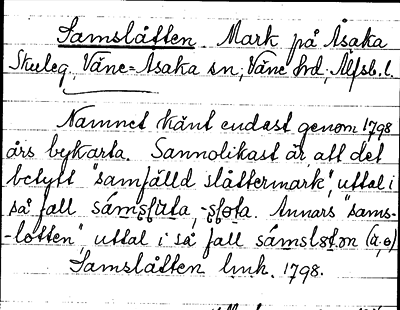 Samslåtten Mark på Åsaka
Skuleg., Väne-Åsaka sn, Väne hd, Älfsb. l.
Namnet känt endast genom 1798
års bykarta. Sannolikast är att det
betytt "samfälld slåttermark", uttal i
så fall sámsʃɑta, -sʃota. Annars "sams-
-lotten", uttal i så fall sámslɔton (a, o)
Samslåtten lmh. 1798.